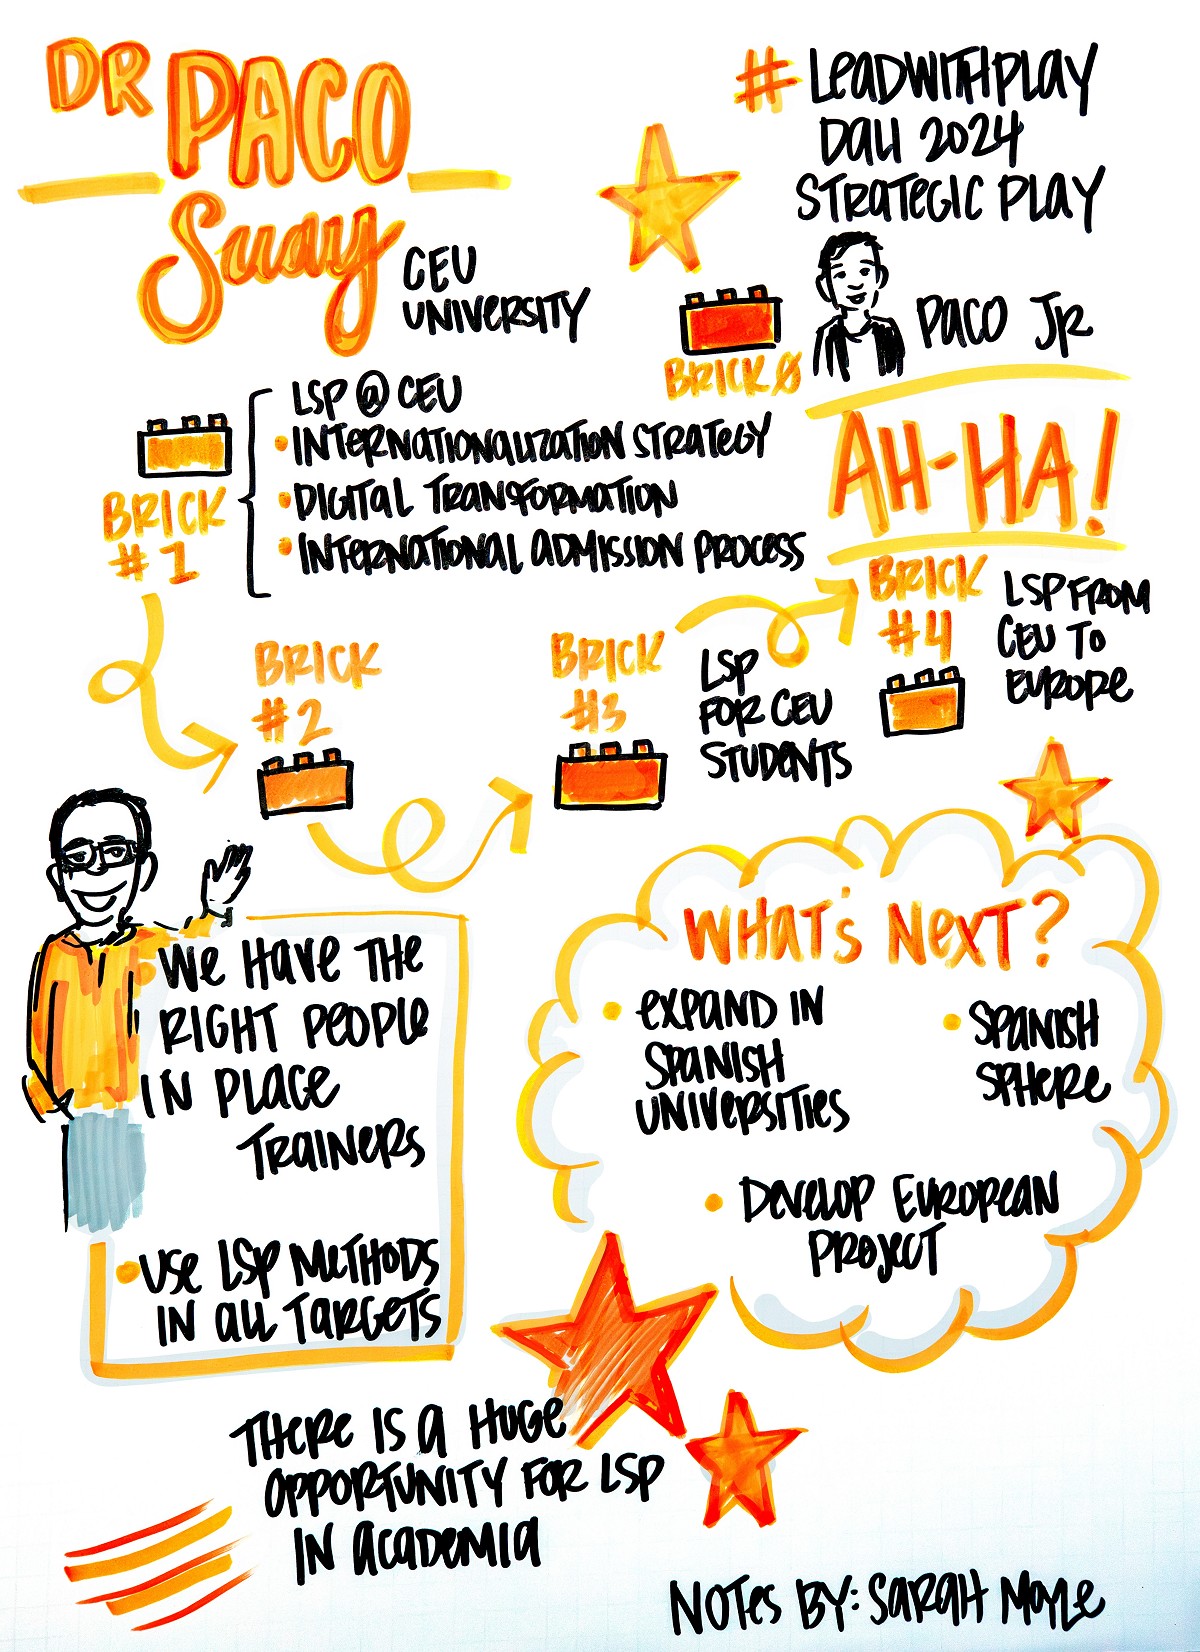 DR PACO
Suay
CEU
UNIVERSITY
#LEADWITHPLAY
DALI 2024
STRATEGIC PLAY
PACO JR
BRICK Ø
AH-HA!
BRICK
#1
LSP @ CEU
• INTERNATIONALIZATION STRATEGY
• DIGITAL TRANSFORMATION
• INTERNATIONAL ADMISSION PROCESS
BRICK
#2
BRICK
#3
LSP
FOR CEU
STUDENTS
BRICK
#4
LSP FROM
CEU TO
EUROPE
• WE HAVE THE
RIGHT PEOPLE
IN PLACE
TRAINERS
• USE LSP METHODS
IN ALL TARGETS
WHAT'S NEXT?
• EXPAND IN
SPANISH
UNIVERSITIES
• SPANISH
SPHERE
• DEVELOP EUROPEAN
PROJECT
THERE IS A HUGE
OPPORTUNITY FOR LSP
IN ACADEMIA
NOTES BY: SARAH MOYLE